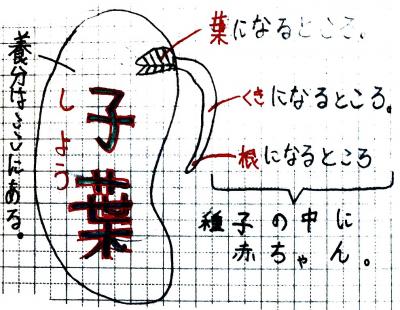 養分はここにある。
子葉
しよう
葉になるところ。
くきになるところ。
根になるところ
種子の中に
赤ちゃん。